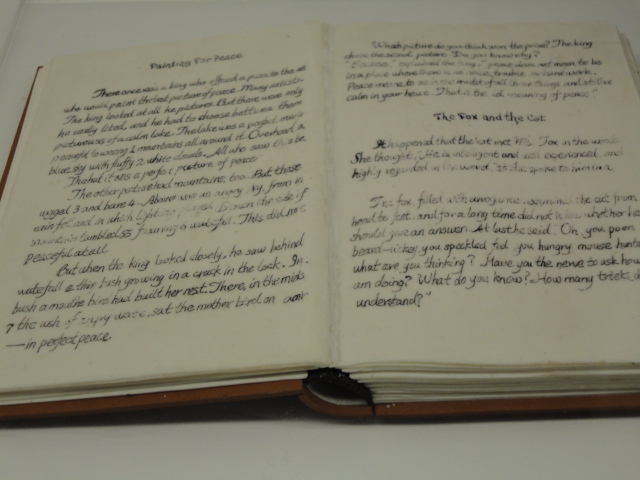 Painting For Peace
There once was a king who offered a prize to the art
who would paint the best picture of peace. Many artists
The king looked at all he pictures. But there were only
he really liked, and he had to choose between them
picture was of a calm lake. The lake was a perfect
peaceful towering mountains all around it. Overhead a
blue sky with fluffy white clouds. All who saw this
Thought it was a perfect picture of peace
The other picture had mountains, too. But these
rugged 3 and bare 4. Above was an angry sky, from
rain fell and in which lightning Down the side
tumbled 5 a waterfall. This did not
Peaceful at all.
But when the king looked closely, he saw behind
waterfall a thin bush growing in a crack in the rock. In
bush a mother bird had built her nest. There, in the mids
? the rush of angry water, sat the mother bird on
— in perfect peace.
Which picture do you think won the prize? The king
chose the second picture. Do you know why?
"Because," explained the king, " peace does not mean to be
in a place where there is no noise, trouble, or hard work.
Peace means to be in the midst of all those things and still be
calm in your heart. That is the real meaning of peace"
The Fox and the Cat
It happened that the cat met Mr. Fox in the
She thought, He is intelligent and well experienced, and
highly regarded in the world. so she spoke to him in a
The fox, filled with arrogance, examined the cat from
head to foot, and for a long time did not know whether he
should give an answer. At last he said, Oh, you poor
beard-licker, you speckled you hungry mouse hunte
what are you thinking? Have you the nerve to ask how
am doing? What do you know? How many tricks do
understand?"